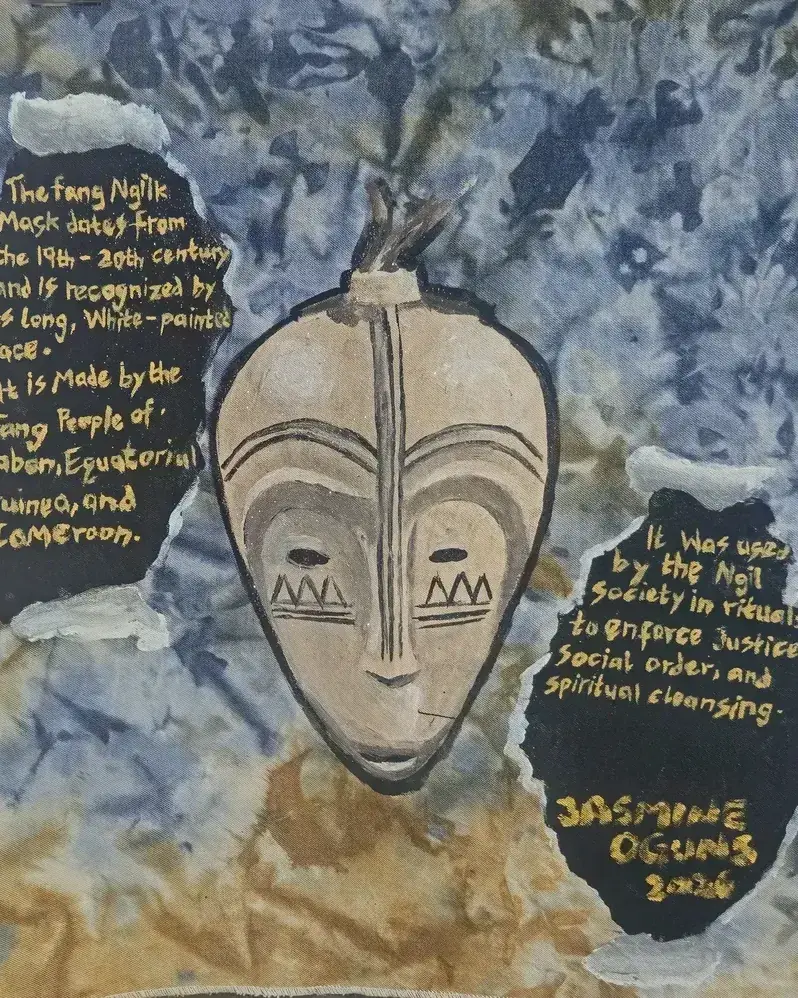 The fang Ngilk
Mask dates from
the 19th - 20th century
and is recognized by
s Long, White-painted
ace.
It is Made by the
ang People of.
abon, Equatorial
uinea, and
Cameroon.
It was used
by the Ngil
Society in rituals
to enforce Justice
Social order, and
Spiritual cleansing.
JASMINE
OGUNS
2026